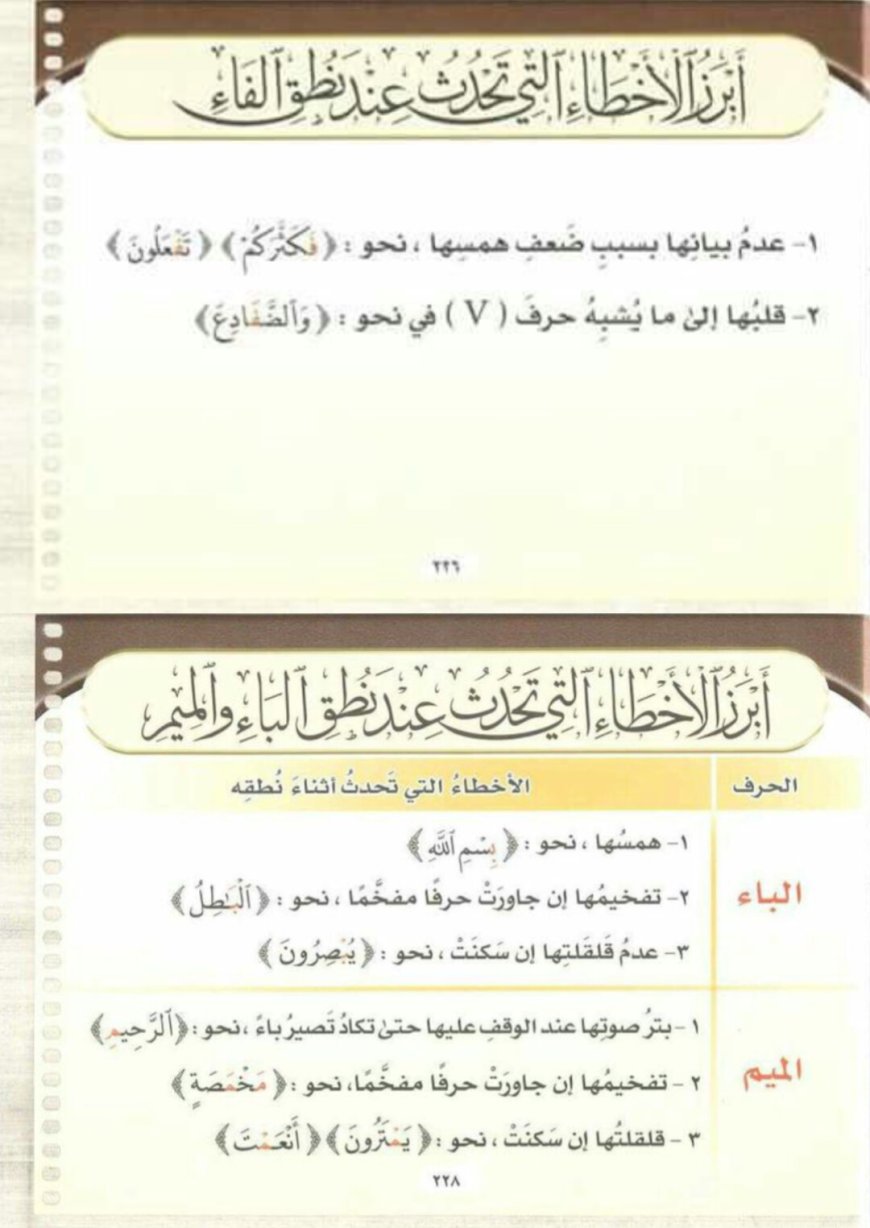 أَبْرَزُ ٱلْأَخْطَاءِ ٱلَّتِي تَحْدُثُ عِنْدَ نُطْقِ ٱلْفَاءِ
١- عدمُ بيانِها بسببِ ضَعفِ همسِها ، نحو : ﴿ فَكَثَّرَكُمْ ﴾ ﴿ تَفْعَلُونَ ﴾
٢- قلبُها إلىٰ ما يُشبِهُ حرفَ ( V ) في نحو : ﴿ وَٱلضَّفَادِعَ ﴾
٢٢٦
أَبْرَزُ ٱلْأَخْطَاءِ ٱلَّتِي تَحْدُثُ عِنْدَ نُطْقِ ٱلْبَاءِ وَٱلْمِيمِ
الحرف الأخطاءُ التي تَحدثُ أثناءَ نُطقِه
الباء
١- همسُها ، نحو : ﴿ بِسْمِ ٱللَّهِ ﴾
٢- تفخيمُها إن جاورَتْ حرفًا مفخَّمًا ، نحو : ﴿ ٱلْبَٰطِلُ ﴾
٣- عدمُ قَلقَلتِها إن سَكنَتْ ، نحو : ﴿ يُبْصِرُونَ ﴾
الميم
١ -بترُ صوتِها عند الوقفِ عليها حتىٰ تكادُ تَصيرُ باءً ،نحو : ﴿ٱلرَّحِيمِ﴾
٢ - تفخيمُها إن جاورَتْ حرفًا مفخَّمًا، نحو : ﴿ مَخْمَصَةٍ ﴾
٣ - قلقلتُها إن سَكنَتْ ، نحو : ﴿ يَمْتَرُونَ ﴾ ﴿ أَنْعَمْتَ ﴾
٢٢٨